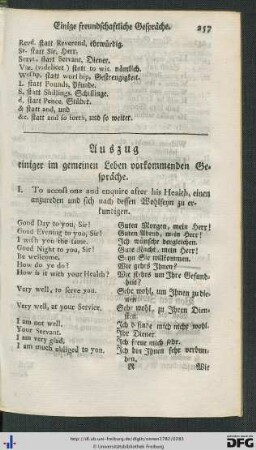 Einige freundschaftliche Gespräche. 257
Revd. statt Reverend, ehrwürdig.
Sr. statt Sir, Herr.
Servt. statt Servant, Diener.
Viz. (videlicet) statt to wit, nämlich.
Wship. statt worship, Gestrengigkeit.
L. statt Pounds, Pfunde.
S. statt Shillings, Schillinge.
d. statt Pence, Stüber.
& statt and, und
&c. statt and so forth, und so weiter.
Auszug
einiger im gemeinen Leben vorkommenden Ge-
spräche.
I. To accost one and enquire after his Health, einen
anzureden und sich nach dessen Wohlseyn zu er-
kundigen.
Good Day to you, Sir! Guten Morgen, mein Herr!
Good Evening to you, Sir! Guten Abend, mein Herr!
I wish you the same. Ich wünsche dergleichen.
Good Night to you, Sir! Gute Nacht, mein Herr!
Be welcome. Seyn Sie willkommen.
How do ye do? Wie gehts Ihnen?
How is it with your Health? Wie stehts um Ihre Gesund-
heit?
Very well, to serve you. Sehr wohl, um Ihnen zu die-
nen.
Very well, at your Service. Sehr wohl, zu Ihren Dien-
sten.
I am not well. Ich befinde mich nicht wohl.
Your Servant. Ihr Diener.
I am very glad. Ich freue mich sehr.
I am much obliged to you. Ich bin Ihnen sehr verbun-
den.
R Wie
© Universitätsbibliothek Freiburg
gefördert durch
DFG